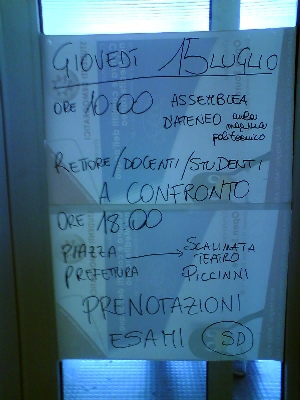 GIOVEDÌ 15 LUGLIO
ORE 10:00 ASSEMBLEA
D'ATENEO aula
magna
politecnico
RETTORE/DOCENTI/STUDENTI
A CONFRONTO
ORE 18:00
PIAZZA → SCALINATA
PREFETTURA TEATRO
PICCINNI
PRENOTAZIONI
ESAMI SD